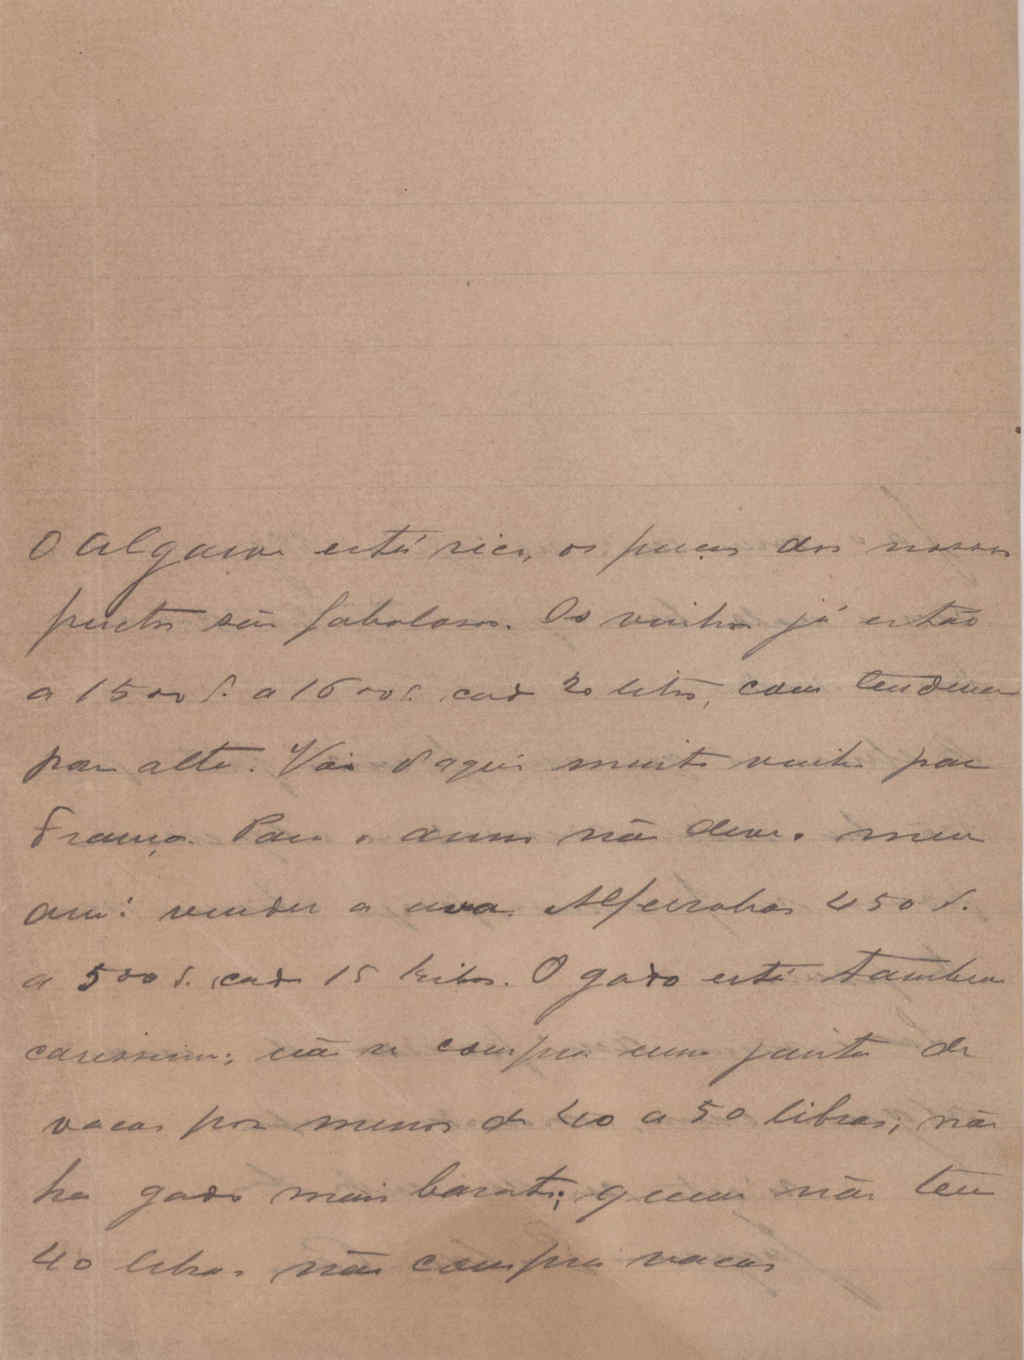 O Algarve está rico, os preços dos nossos
fructos são fabolosos. Os vinhos já estão
a 1500 r. a 1600 r. cada 20 litros, com tendencia
para alta. Vai d'aqui muito vinho para
França. Para o anno não deve o meu
am.º vender a uva. Alfarrobas 450 r.
a 500 r. cada 15 kilos. O gado está tambem
carissimo; não se compra uma junta de
vacas por menos de 40 a 50 libras; não
ha gado mais barato; quem não tem
40 libras não compra vacas